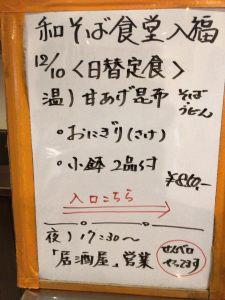 和そば食堂入福
12/10 〈日替定食〉
温) 甘あげ昆布 そば・うどん
・おにぎり(さけ)
・小鉢 2品付
¥860-
入口こちら
夜) 17:30〜
「居酒屋」営業
せんべロ
やってます